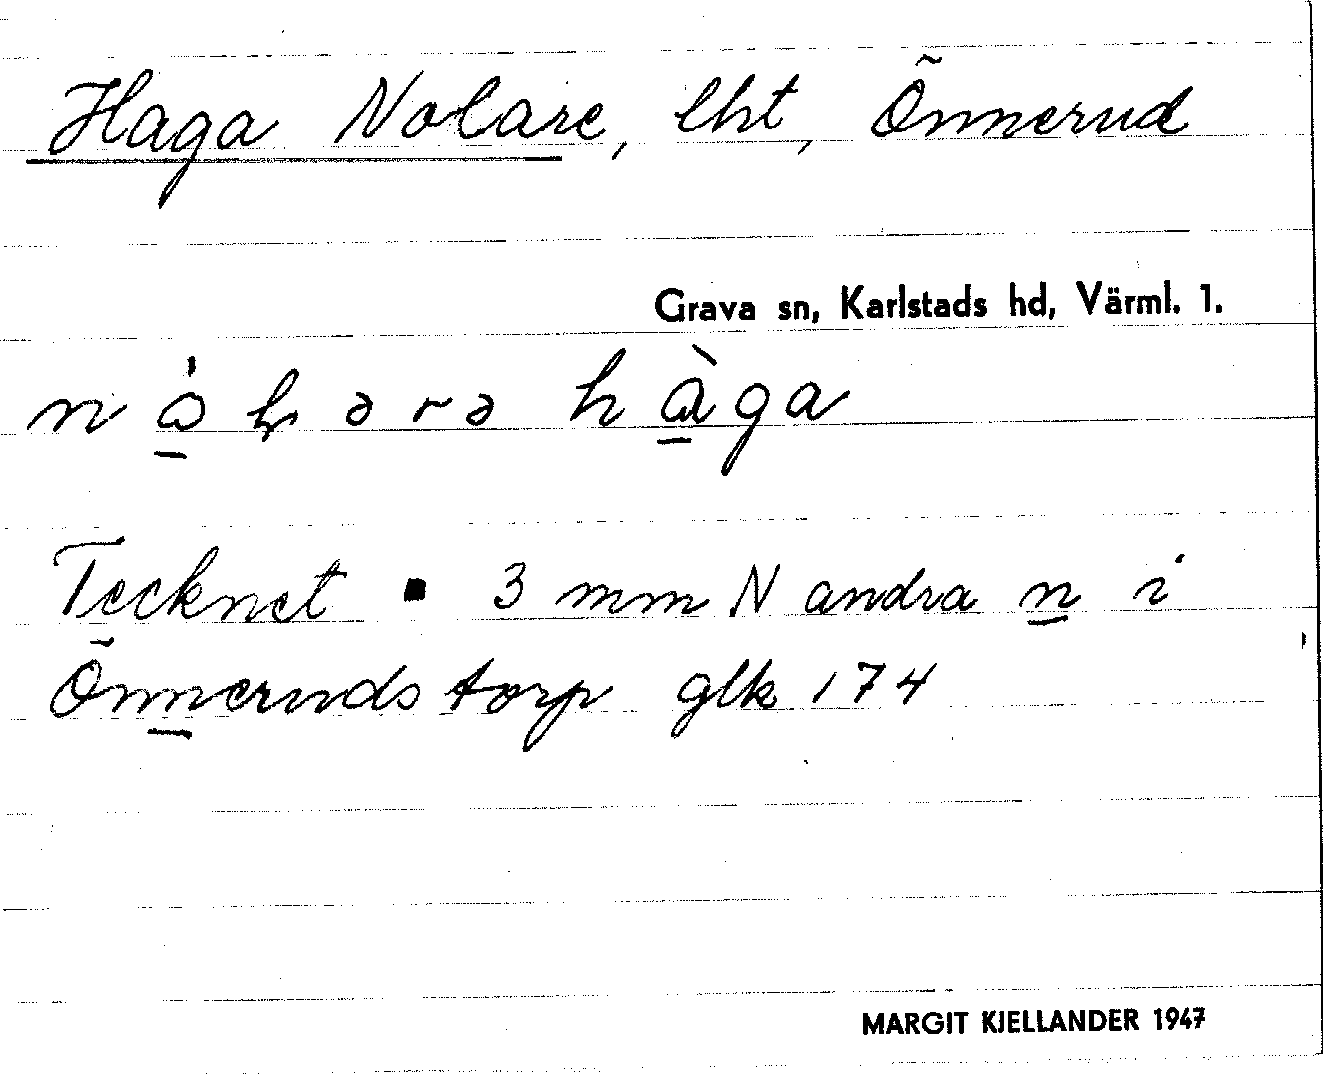 Haga Nolare, lht, Õnnerud
Grava sn, Karlstads hd, Värml. 1.
hàga
Tecknet ▪ 3 mm N andra n i
Õnneruds torp glk 174
MARGIT KJELLANDER 1947